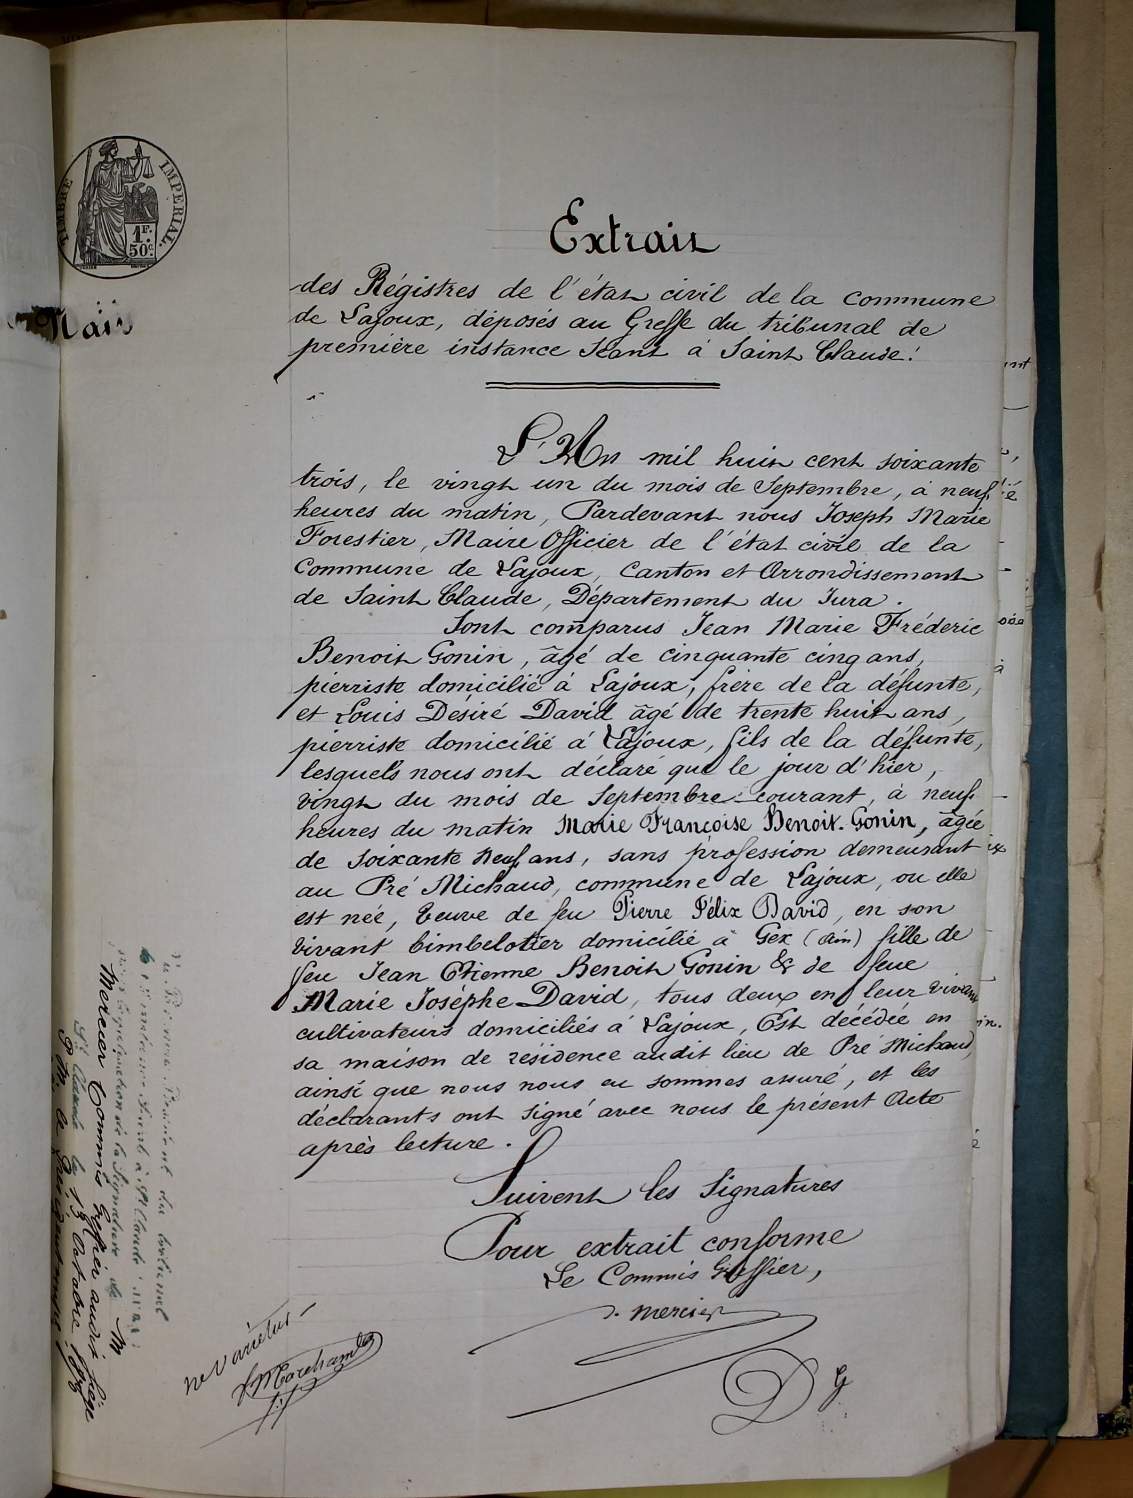 TIMBRE IMPERIAL.
1F.
50c.
Extrait
des Régistres de l'état civil de la commune
de Lajoux, déposés au Greffe du tribunal de
première instance séant à Saint Claude.
L'An mil huit cent soixante
trois, le vingt un du mois de Septembre, à neuf
heures du matin, Pardevant nous Joseph Marie
Forestier, Maire Officier de l'état civil de la
Commune de Lajoux, Canton et Arrondissement
de Saint Claude, Département du Jura.
Sont comparus Jean Marie Fréderic
Benoit Gonin, âgé de cinquante cinq ans,
pierriste domicilié à Lajoux, frère de la défunte,
et Louis Desiré David âgé de trente huit ans,
pierriste domicilié à Lajoux, fils de la défunte,
lesquels nous ont déclaré que le jour d'hier,
vingt du mois de Septembre courant, à neuf
heures du matin Marie Françoise Benoit-Gonin, âgée
de soixante neuf ans, sans profession demeurant
au Pré Michaud, commune de Lajoux, ou elle
est née, Veuve de feu Pierre Félix David, en son
vivant bimbelotier domicilié à Gex (Ain) fille de
feu Jean Etienne Benoit Gonin & de feue
Marie Joséphe David, tous deux en leur vivant
cultivateurs domiciliés à Lajoux, Est décédée en
sa maison de résidence audit lieu de Pré Michaud,
ainsi que nous nous en sommes assuré, et les
déclarants ont signé avec nous le présent Acte
après lecture.
Suivent les Signatures
Pour extrait conforme
Le Commis Greffier,
Mercier
ne varietur
Mercier Commis Greffier audit siège
St Claude le 13 Octobre